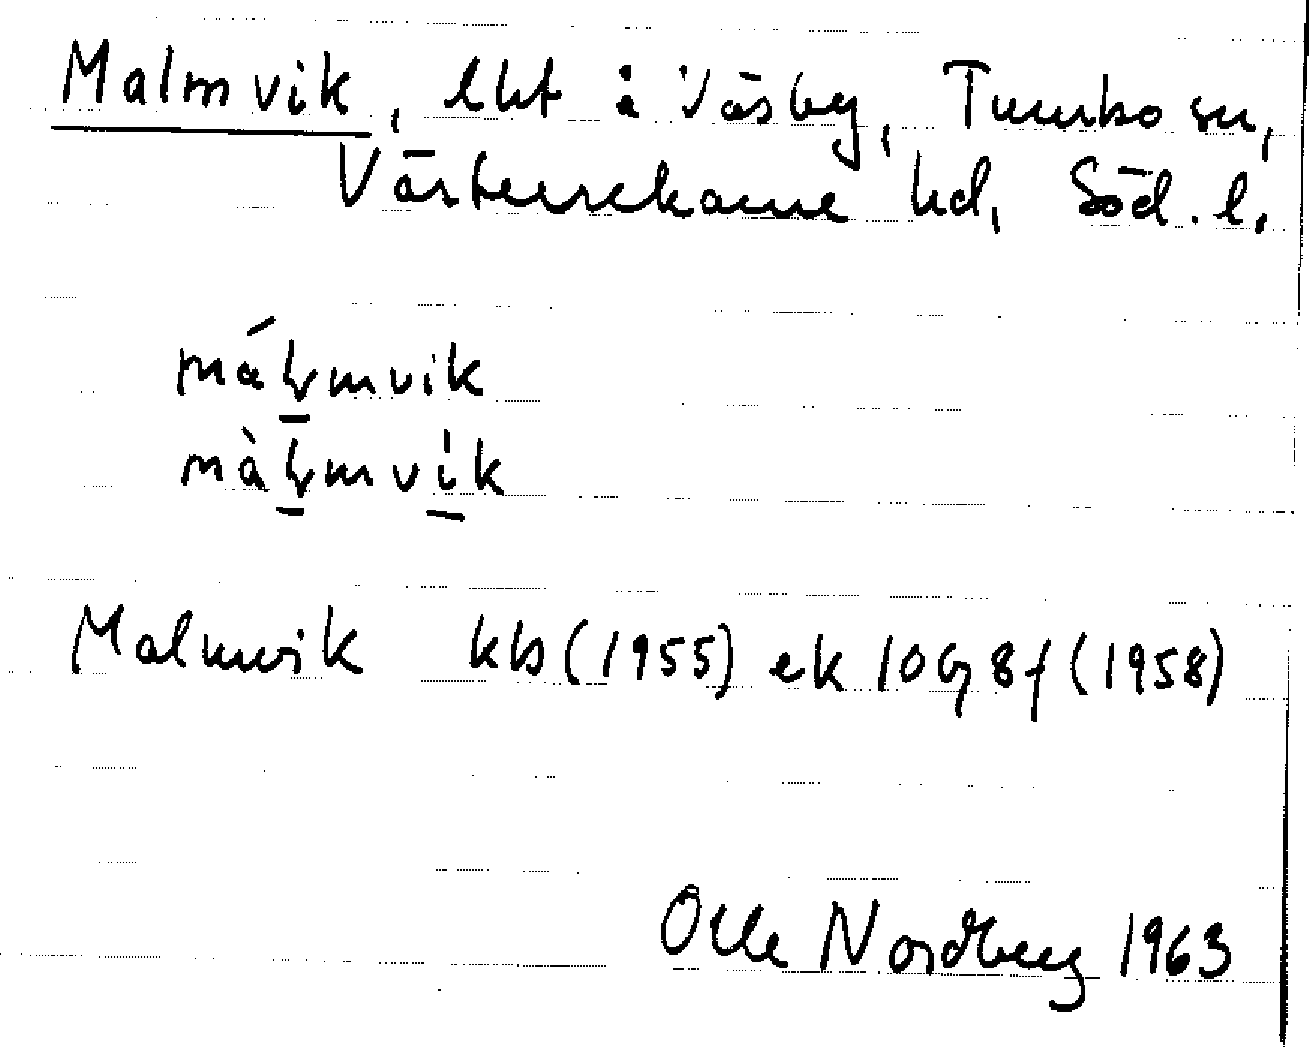 Malmvik, lht i Väsby, Tumbo sn,
Västerrekarne hd, Söd. l.
máḷmvik
màḷmvi̱k
Malmvik kb (1955) ek 10G 8f (1958)
Olle Nordberg 1963